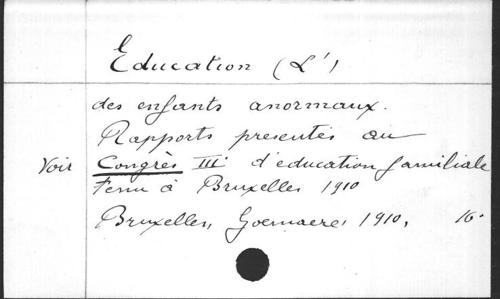 Education (L')
des enfants anormaux.
Rapports presentés au
Voir Congrès III˙ d'éducation familiale
Tenu à Bruxelles 1910
Bruxelles, Goemaere, 1910. 16˙